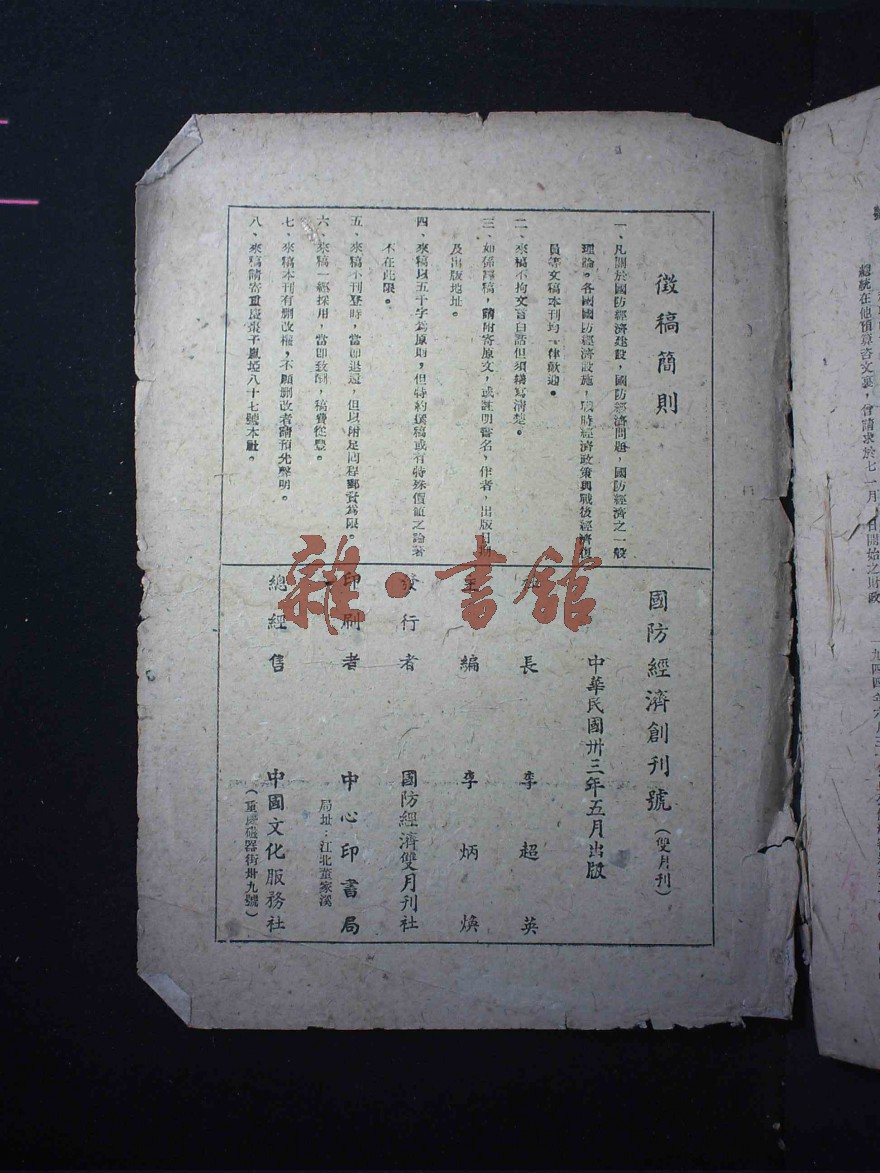 徵稿簡則
一、凡關於國防經濟建設，國防經濟問題，國防經濟之一般
理論。各國國防經濟設施，戰時經濟政策與戰後經濟復
員等文稿本刊均一律歡迎。
二、來稿不拘文言白話但須繕寫清楚。
三、如係譯稿，請附寄原文，或註明書名，作者，出版日期
及出版地址。
四、來稿以五千字爲原則，但特約撰稿或有特殊價值之論著
不在此限。
五、來稿不刊登時，當即退還，但以附足回程郵資爲限。
六、來稿一經採用，當即致酬，稿費從豐。
七、來稿本刊有刪改權，不願刪改者請預先聲明。
八、來稿請寄重慶張子嵐埡八十七號本社。
國防經濟創刊號（雙月刊）
中華民國卅三年五月出版
社長 李超英
主編 李炳煥
發行者 國防經濟雙月刊社
印刷者 中心印書局
局址：江北董家溪
總經售 中國文化服務社
（重慶磁器街卅九號）
雜·書舘
總統在他預算咨文裏，曾請求於七月一日開始之財政